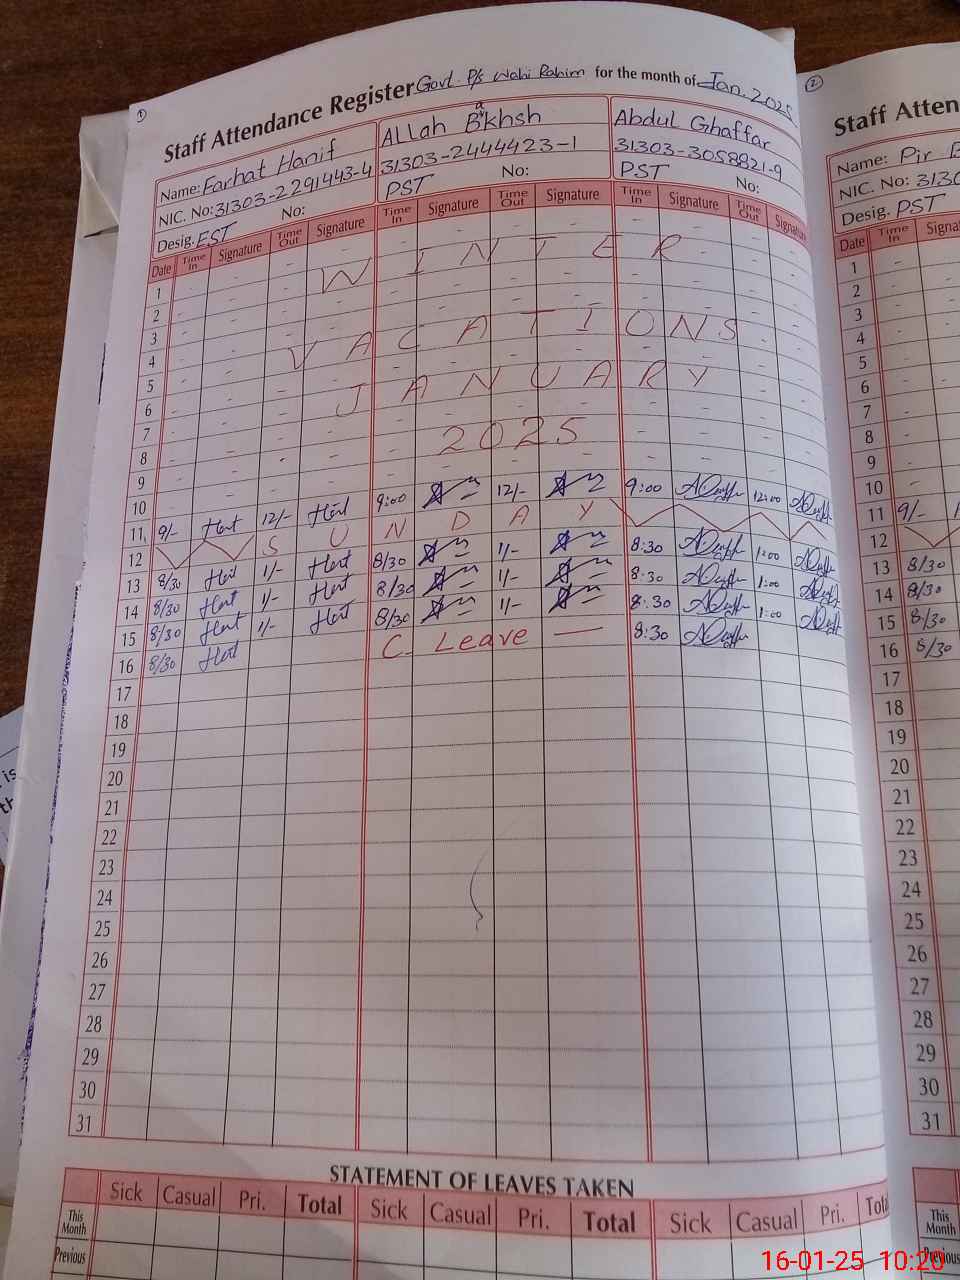 ①
Staff Attendance Register Govt. P/s Wahi Rahim for the month of Jan. 2025
Name: Farhat Hanif
ALLah Bakhsh
Abdul Ghaffar
NIC. No: 31303-2291443-4
31303-2444423-1
31303-3058821-9
Desig. EST No:
PST No:
PST No:
Date Time In Signature Time Out Signature Time In Signature Time Out Signature Time In Signature Time Out Signature
1
2
3
4
5
6
7
8
9
10
WINTER
VACATIONS
JANUARY
2025
11 9/- 12/- 9:00 12/- 9:00 12:00
12 SUNDAY
13 8/30 1/- 8/30 1/- 8:30 1:00
14 8/30 1/- 8/30 1/- 8:30 1:00
15 8/30 1/- 8/30 1/- 8:30 1:00
16 8/30 C. Leave — 8:30
17
18
19
20
21
22
23
24
25
26
27
28
29
30
31
STATEMENT OF LEAVES TAKEN
Sick Casual Pri. Total Sick Casual Pri. Total Sick Casual Pri. Total
This Month
Previous
②
Staff Atten
Name: Pir B
NIC. No: 3130
Desig. PST
Date Time In Signa
1
2
3
4
5
6
7
8
9
10
11 9/-
12
13 8/30
14 8/30
15 8/30
16 8/30
17
18
19
20
21
22
23
24
25
26
27
28
29
30
31
This Month
Previous
is
th
16-01-25 10:20